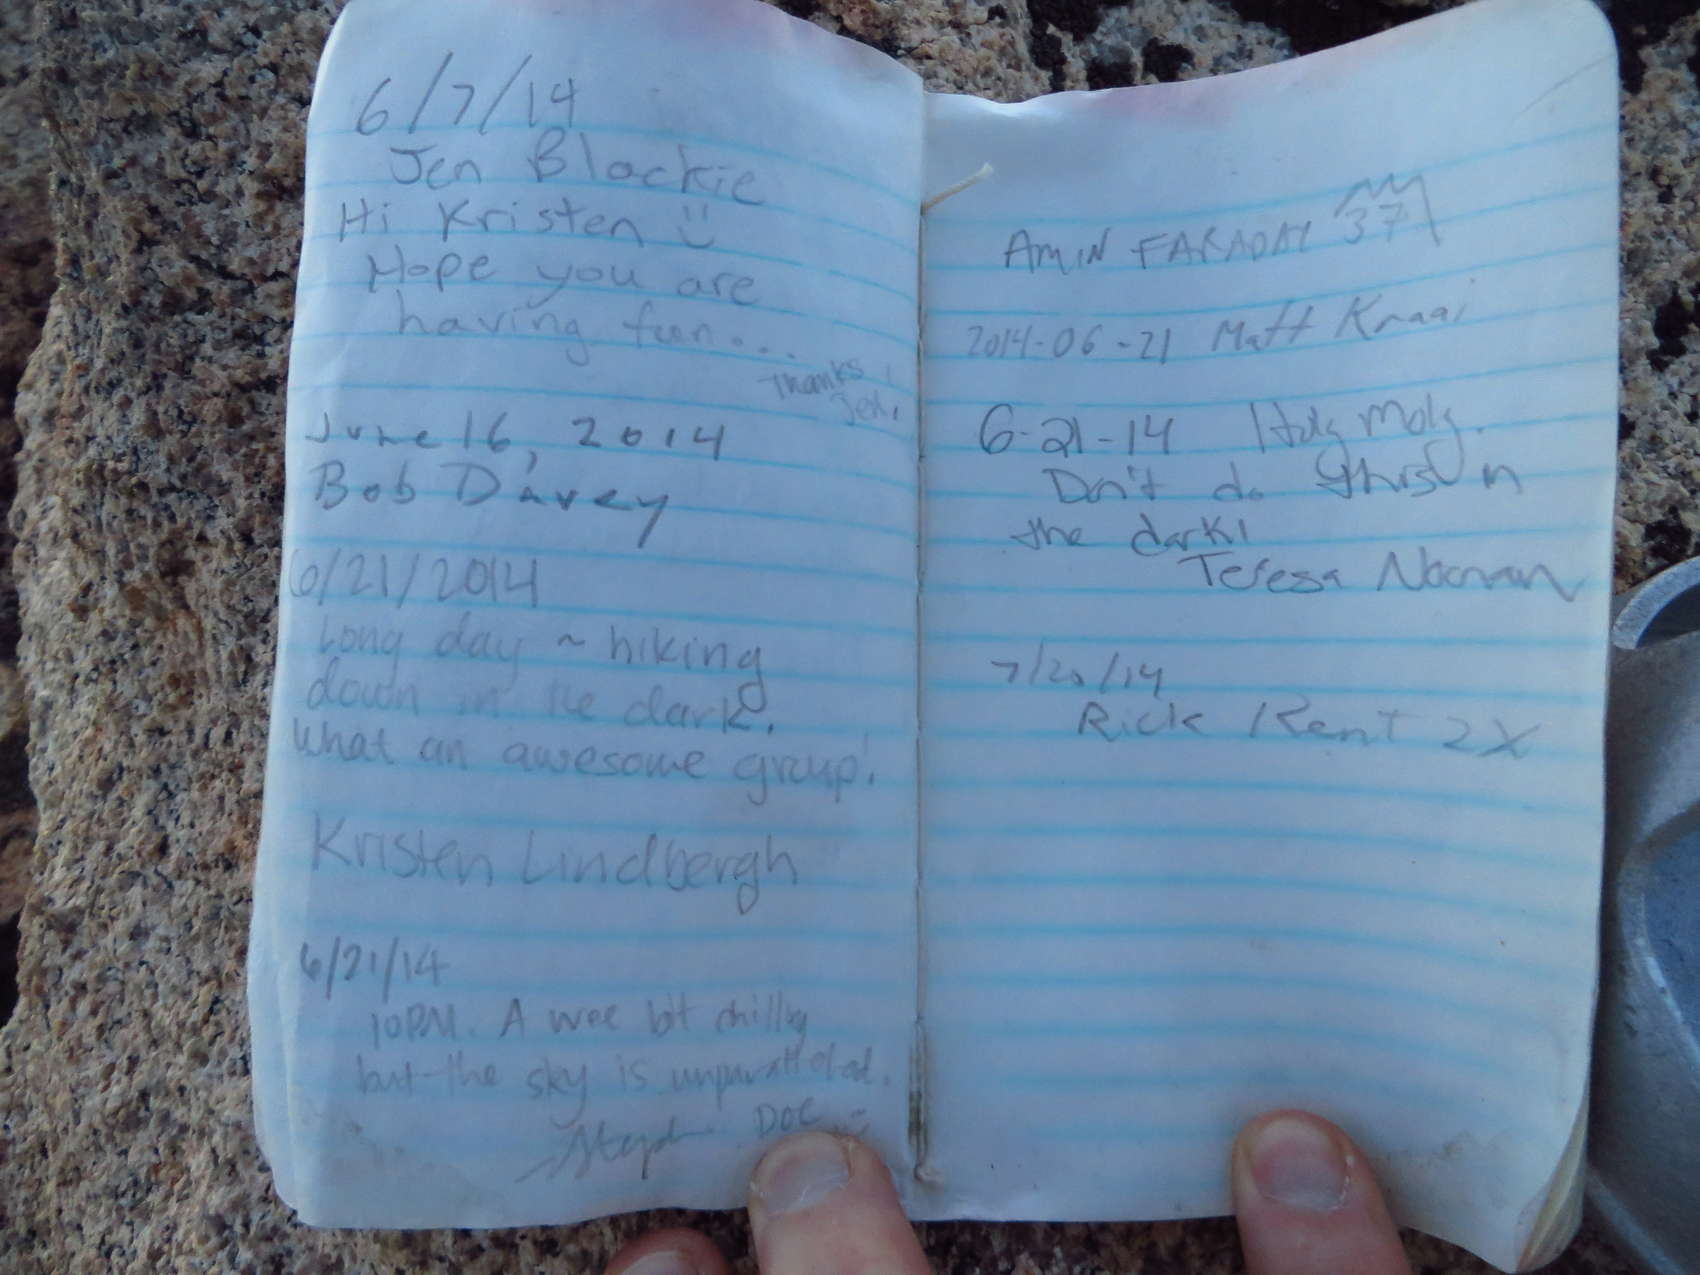 6/7/14
Jen Blackie
Hi Kristen
Hope you are
having fun...
Thanks
Jen!
June 16, 2014
Bob Davey
6/21/2014
Long day ~ hiking
down in the dark.
What an awesome group!
Kristen Lindbergh
6/21/14
10PM. A wee bit chilly
but the sky is
DOC
AMIN FARADAY 37
2014-06-21 Matt Kraai
6-21-14 Holy Moly.
Don't do this in
the dark!
Teresa Noonan
7/20/14
Rick Kent 2X